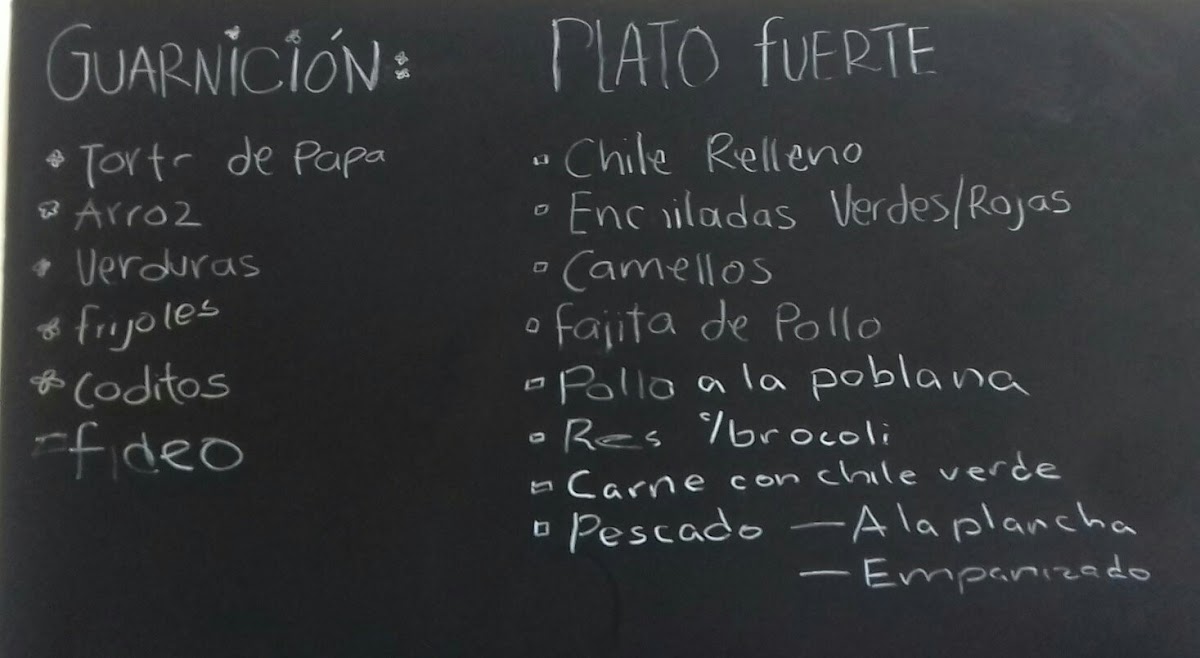 GUARNICIÓN:
Tortr de Papa
Arroz
Verduras
frijoles
Coditos
fideo
PLATO fUERTE
Chile Relleno
Enchiladas Verdes/Rojas
Camellos
fajita de Pollo
Pollo a la poblana
Res c/brocoli
Carne con chile verde
Pescado — A la plancha
— Empanizado